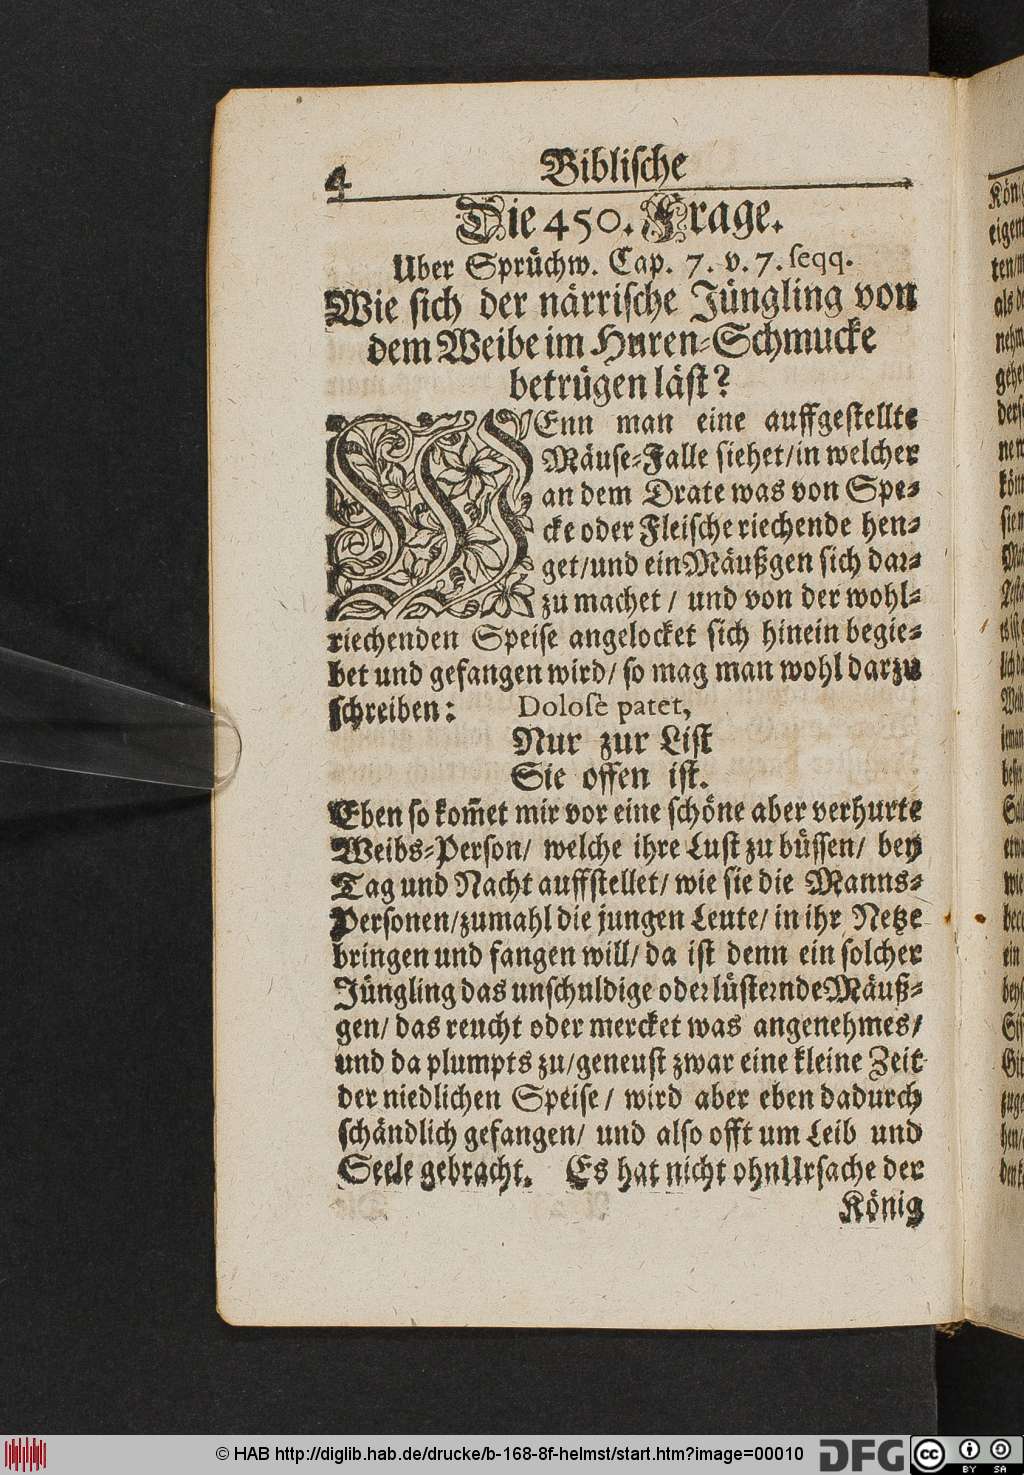 4 Biblische
Die 450. Frage.
Uber Sprüchw. Cap. 7. v. 7. seqq.
Wie sich der närrische Jüngling von
dem Weibe im Huren-Schmucke
betrügen läst?
WEnn man eine auffgestellte
Mäuse-Falle siehet/in welcher
an dem Drate was von Spe-
cke oder Fleische riechende hen-
get/und ein Mäußgen sich dar-
zu machet / und von der wohl-
riechenden Speise angelocket sich hinein begie-
bet und gefangen wird/ so mag man wohl darzu
schreiben: Dolosè patet,
Nur zur List
Sie offen ist.
Eben so kom̃et mir vor eine schöne aber verhurte
Weibs-Person/ welche ihre Lust zu büssen/ bey
Tag und Nacht auffstellet/ wie sie die Manns-
Personen/zumahl die jungen Leute/ in ihr Netze
bringen und fangen will/ da ist denn ein solcher
Jüngling das unschuldige oder lüsternde Mäuß-
gen/ das reucht oder mercket was angenehmes/
und da plumpts zu/geneust zwar eine kleine Zeit
der niedlichen Speise/ wird aber eben dadurch
schändlich gefangen/ und also offt um Leib und
Seele gebracht. Es hat nicht ohn Ursache der
König
© HAB http://diglib.hab.de/drucke/b-168-8f-helmst/start.htm?image=00010 DFG cc BY SA